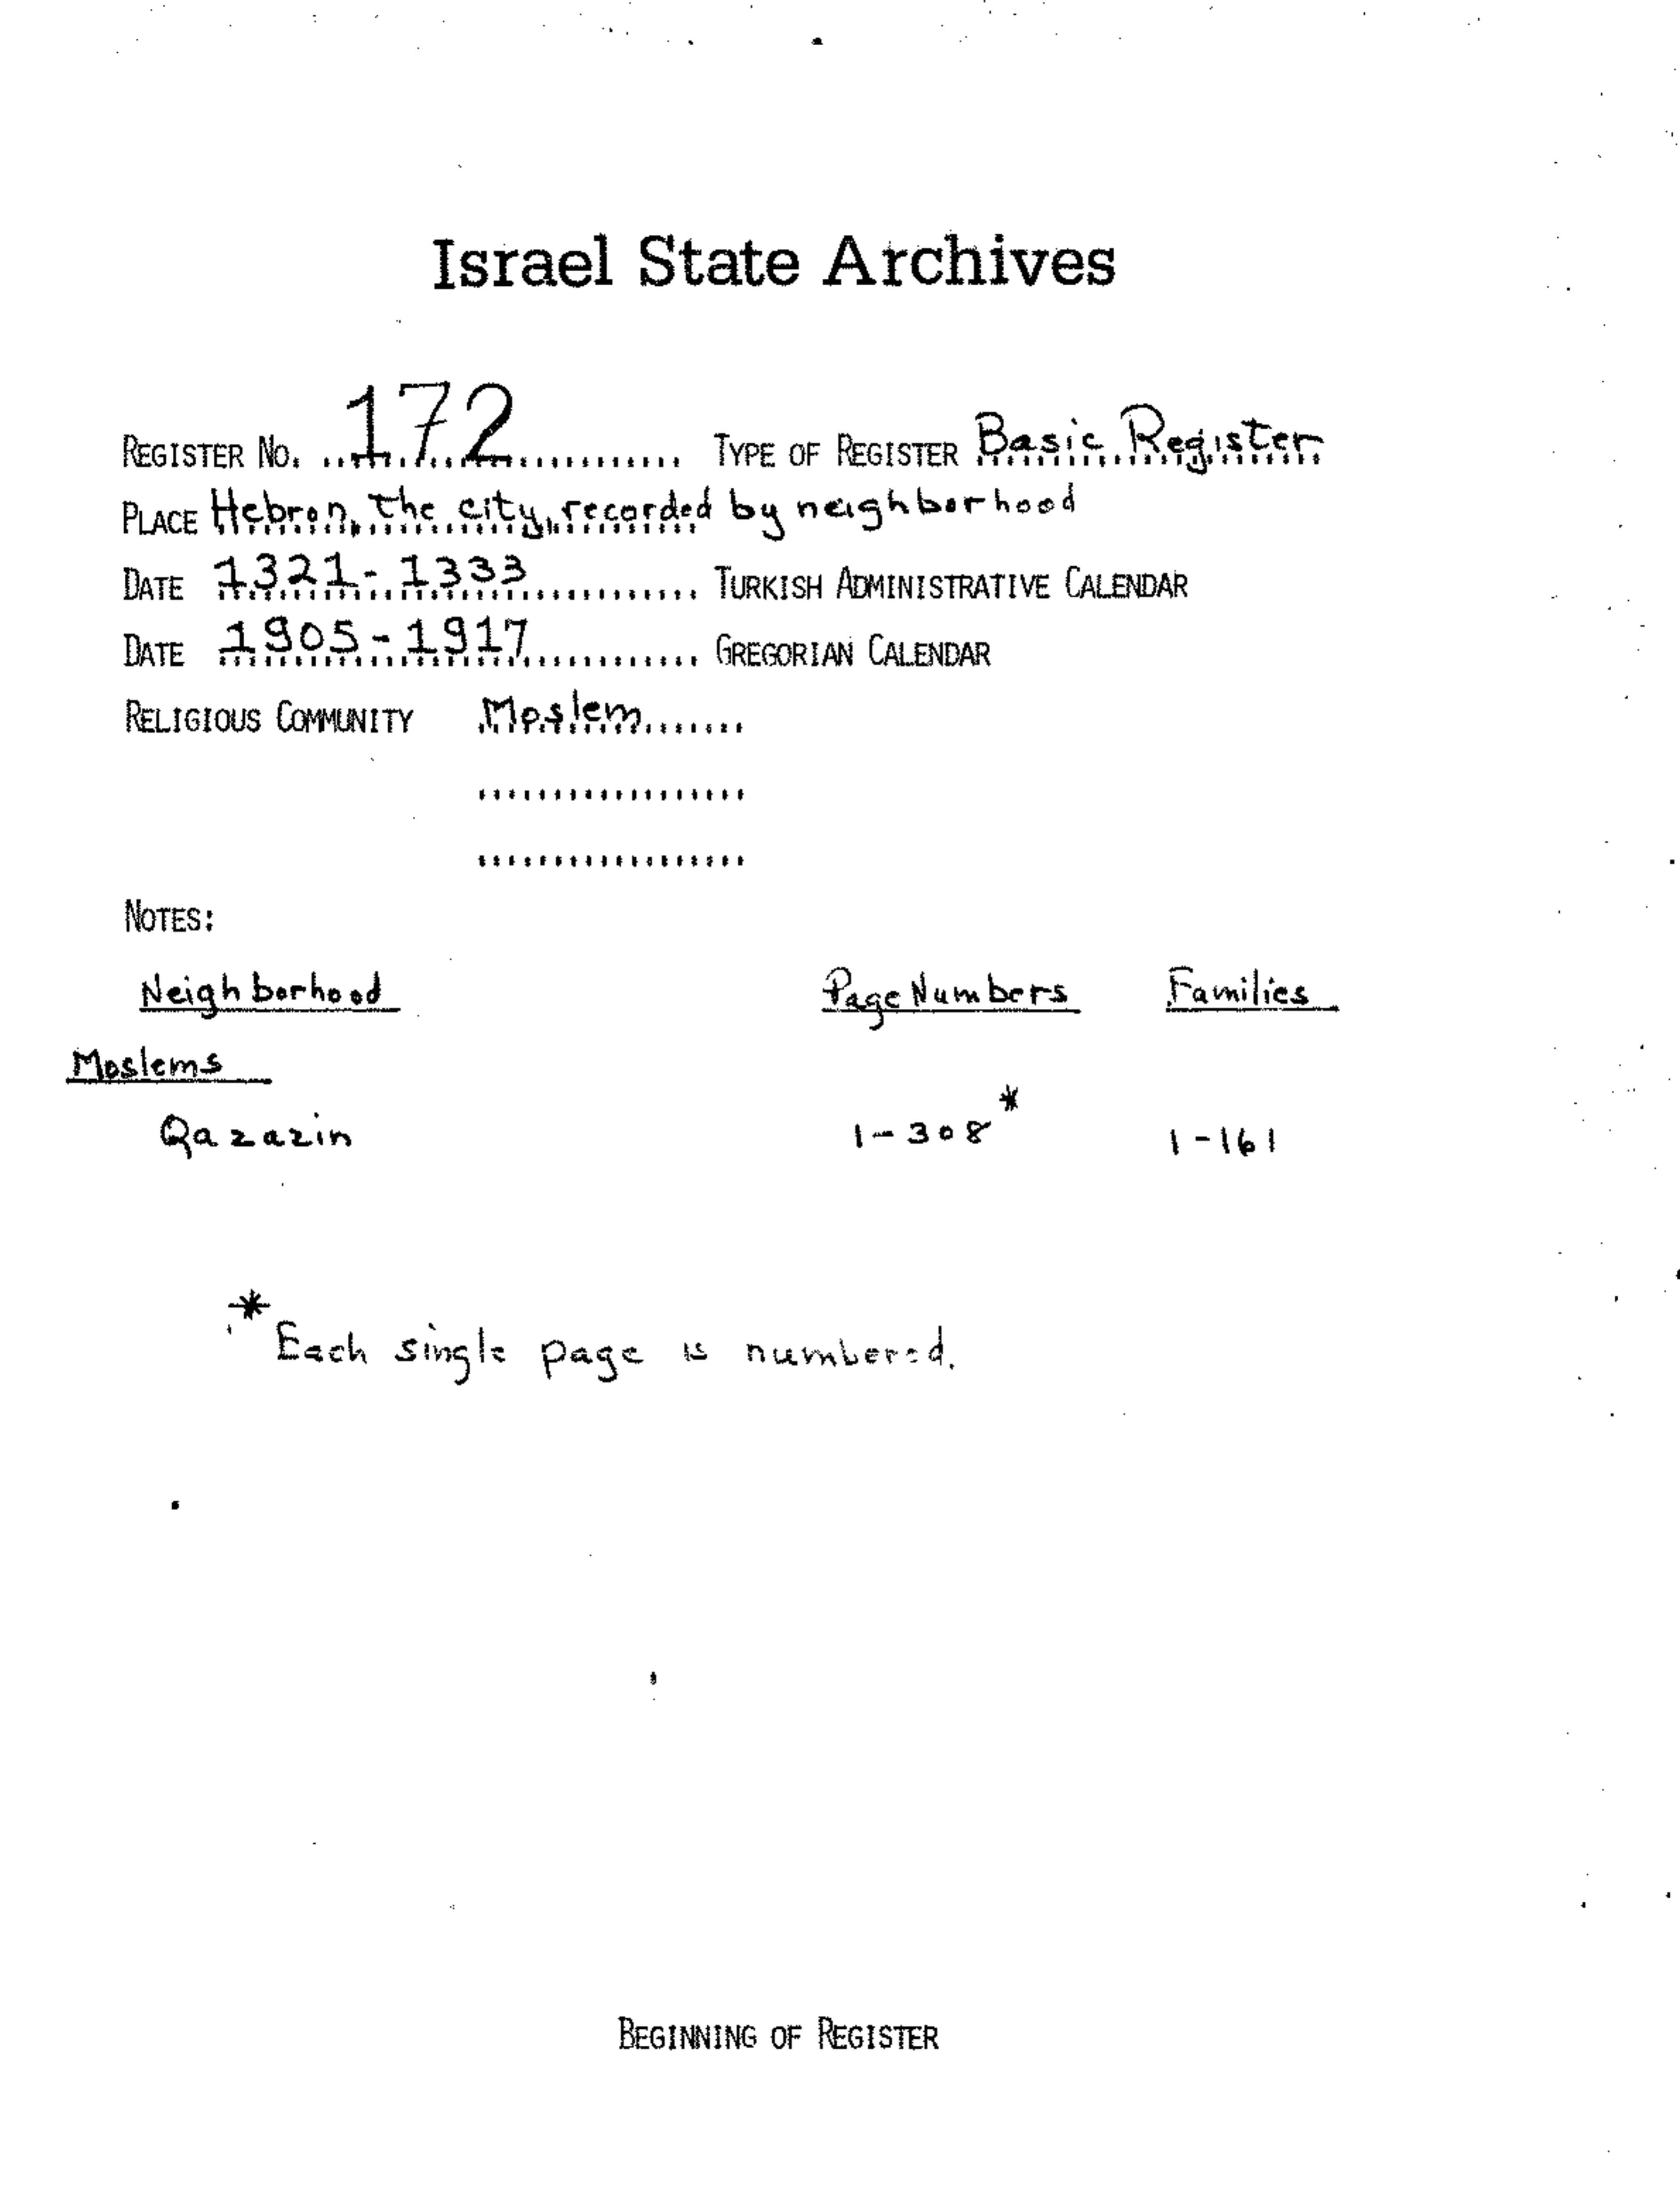 Israel State Archives
REGISTER No. 172 TYPE OF REGISTER Basic Register
PLACE Hebron, the city, recorded by neighborhood
DATE 1321-1333 TURKISH ADMINISTRATIVE CALENDAR
DATE 1905-1917 GREGORIAN CALENDAR
RELIGIOUS COMMUNITY Moslem
NOTES:
Neighborhood Page Numbers Families
Moslems
Qazazin 1-308* 1-161
* Each single page is numbered.
BEGINNING OF REGISTER